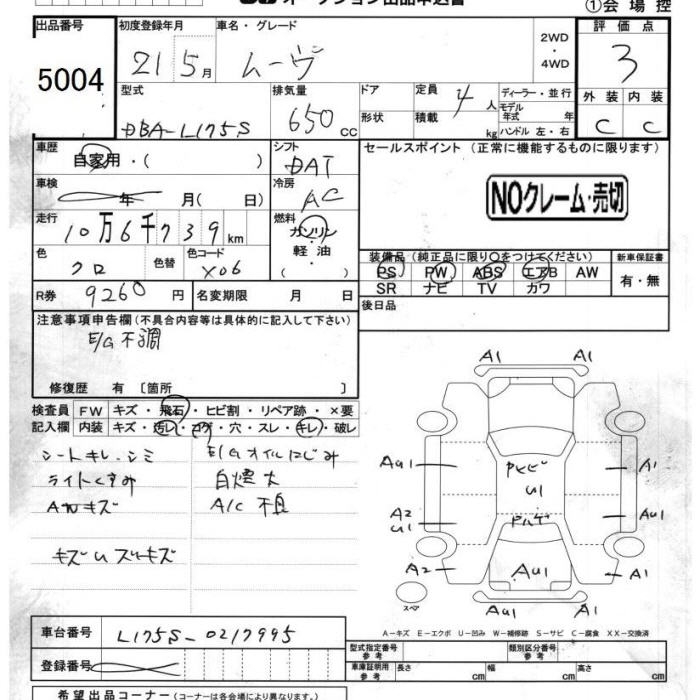 オークション出品申込書
①会場控
出品番号
5004
初度登録年月
21 5月
車名・グレード
ムーヴ
2WD
・
4WD
評価点
3
外装 内装
C C
型式
DBA-L175S
排気量
650 CC
ドア
形状
定員 4 人
積載 kg
ディーラー・並行
モデル年式 年
ハンドル 左・右
車歴
自家用・( )
シフト
DAT
車検
年 月(日)
冷房
AC
走行
10万6千739km
燃料
ガソリン
軽油
( )
色
クロ
色替
色コード
X06
R券 9260円
名変期限 月 日
セールスポイント(正常に機能するものに限ります)
NOクレーム・売切
装備品(純正品に限り○をつけてください)
PS PW ABS エアB AW
SR ナビ TV カワ
新車保証書
有・無
後日品
注意事項申告欄(不具合内容等は具体的に記入して下さい)
E/G不調
修復歴 有〔箇所 〕
検査員記入欄
FW キズ・飛石・ヒビ割・リペア跡・×要
内装 キズ・汚レ・コゲ・穴・スレ・キレ・破レ
シートキレ.シミ
ライトくすみ
AWキズ
キズUスリキズ
E/Gオイルにじみ
白煙大
A/C 不良
A1 A1
AU1 A1
U1
A2
U1
AU1
A2 AU1 A1
AU1 A1
スペア
A-キズ E-エクボ U-凹み W-補修跡 S-サビ C-腐食 XX-交換済
車台番号
L175S-0217995
登録番号
型式指定番号
参考
類別区分番号
参考
車庫証明用
参考
長さ cm
幅 cm
高さ cm
希望出品コーナー(コーナーは各会場により異なります。)